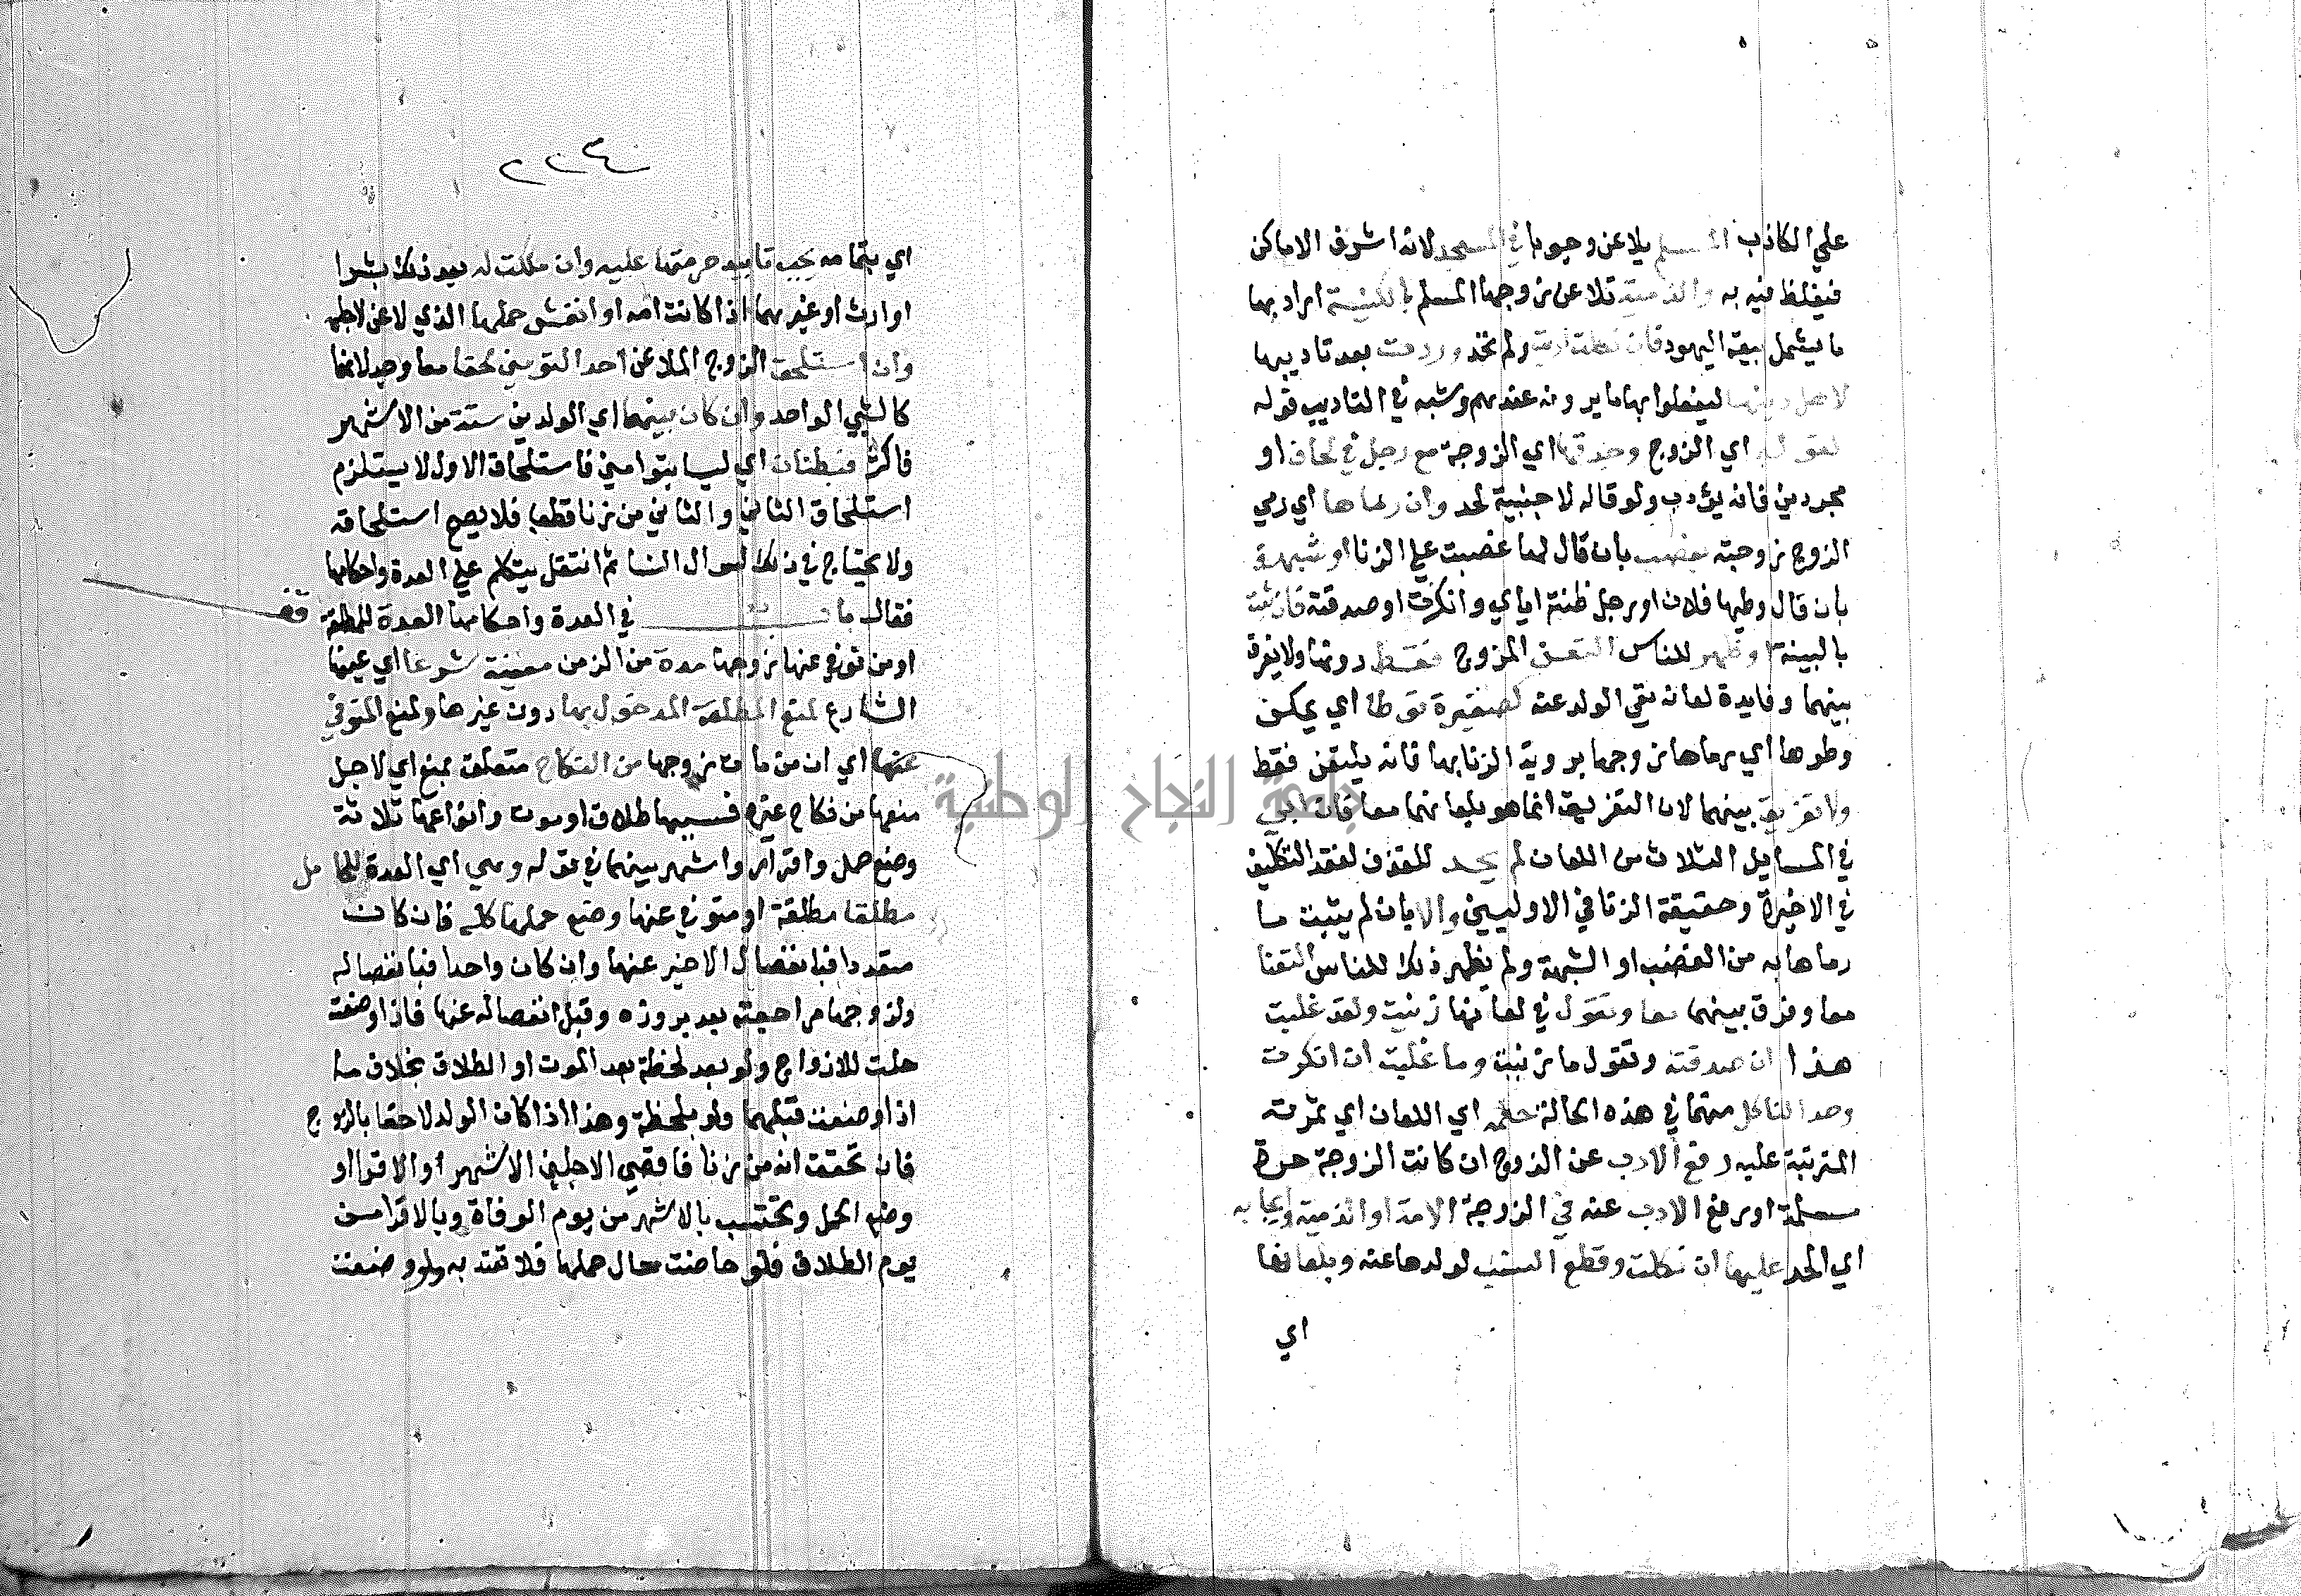 علي الكاذب المسلم يلاعن وجوبا في المسجد لانه اشرف الاماكن
فيغلظ فيه به والذمية تلاعن زوجها المسلم بالكنيسة اراد بها
ما يشمل بيعة اليهود فان نكلت ادبت ولم تحد وردت بعد تاديبها
لاهل دينها ليفعلوا بها ما يرونه عندهم وشبه في التاديب قوله
كقوله اي الزوج وجدتها اي الزوجة مع رجل في لحاف او
مجردين فانه يؤدب ولو قاله لاجنبية لحد وان رماها اي رمي
الزوج زوجته بغصب بان قال لها غصبت علي الزنا او شبهة
بان قال وطيها فلان او رجل ظنته اياي وانكرت او صدقته فان ثبت
بالبينة او ظهر للناس التعن الزوج فقط دونها ولا يفرق
بينهما وفايدة لعانه نفي الولد عنه كصغيرة توطا اي يمكن
وطوها اي رماها زوجها بروية الزنا بها فانه يلتعن فقط
ولا تفريق بينهما لان التفريق انما هو بلعانهما معا فان ابي
في المسايل الثلاث من اللعان لم يحد للقذف لفقد التكليف
في الاخيرة وحقيقة الزنا في الاوليين والا بان لم يثبت ما
رماها به من الغصب او الشبهة ولم يظهر ذلك للناس التعنا
معا وفرق بينهما معا وتقول في لعانها زنيت ولقد غلبت
هذا ان صدقته وتقول ما زنيت وما غلبت ان انكرت
وحد الناكل منهما في هذه الحالة حكمه اي اللعان اي ثمرته
المترتبة عليه رفع الادب عن الزوج ان كانت الزوجة حرة
مسلمة او رفع الادب عنه في الزوجة الامة او الذمية وايجابه
اي الحد عليها ان نكلت وقطع النسب لولدها عنه وبلعانها
اي
٢٢٣
اي بتمامه يجب تابيد حرمتها عليه وان ملكت له بعد ذلك بشرا
او ارث او غيرهما اذا كانت امه او انفش حملها الذي لاعن لاجله
وان استلحق الزوج الملاعن احد التومين لحقا معا وجد لانهما
كالشي الواحد وان كان بينهما اي الولدين ستة من الاشهر
فاكثر فبطنان اي ليسا بتوامين فاستلحاق الاول لا يستلزم
استلحاق الثاني والثاني من زنا قطعا فلا يصح استلحاقه
ولا يحتاج في ذلك لسوال النسا ثم انتقل يتكلم علي العدة واحكامها
فقال باب في العدة واحكامها العدة للمطلقة قف
او من توفي عنها زوجها مدة من الزمن معينة شرعا اي عينها
الشارع لمنع المطلقة المدخول بها دون غيرها ولمنع المتوفي
عنها اي ان من مات زوجها من النكاح متعلق بمنع اي لاجل
منعها من نكاح غيره فسببها طلاق او موت وانواعها ثلاثة
وضع حمل واقراء واشهر بينهما في قوله وهي اي العدة للحامل
مطلقا مطلقة او متوفي عنها وضع حملها كله فان كان
متعددا فبانفصال الاخير عنها وان كان واحدا فبانفصاله
ولزوجها مراجعته بعد بروزه وقبل انفصاله عنها فاذا وضعت
حلت للازواج ولو بعد لحظة بعد الموت او الطلاق بخلاف ما
اذا وضعت قبلهما ولو بلحظة وهذا اذا كان الولد لاحقا بالزوج
فان تحقق انه من زنا فاقصي الاجلين الاشهر او الاقرا او
وضع الحمل وتحتسب بالاشهر من يوم الوفاة وبالاقرا من
يوم الطلاق فلو حاضت حال حملها فلا تعتد به ولو وضعت